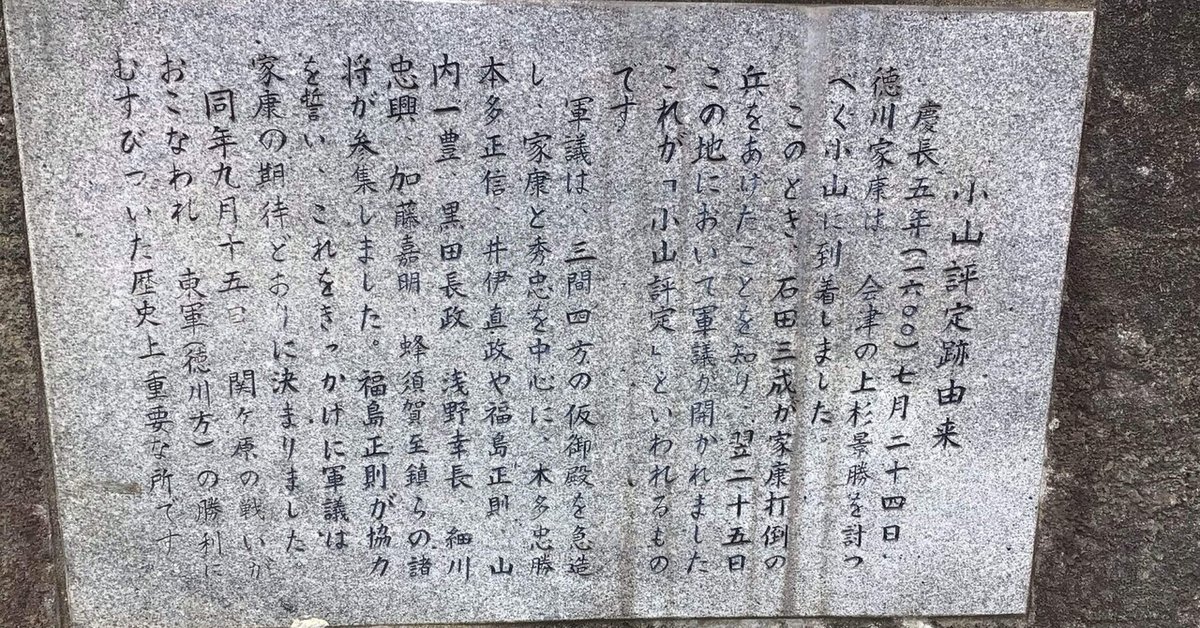 小山評定跡由来
慶長五年(一六〇〇)七月二十四日、
徳川家康は 会津の上杉景勝を討つ
べく小山に到着しました。
このとき、石田三成が家康打倒の
兵をあげたことを知り、翌二十五日
この地において軍議が開かれました
これが「小山評定」といわれるもの
です
軍議は、三間四方の仮御殿を急造
し、家康と秀忠を中心に、本多忠勝
本多正信、井伊直政や福島正則、山
内一豊、黒田長政、浅野幸長 細川
忠興、加藤嘉明、蜂須賀至鎮らの諸
将が参集しました。福島正則が協力
を誓い、これをきっかけに軍議は
家康の期待どおりに決まりました
同年九月十五日、関ヶ原の戦いが
おこなわれ 東軍(徳川方)の勝利に
むすびついた歴史上重要な所です